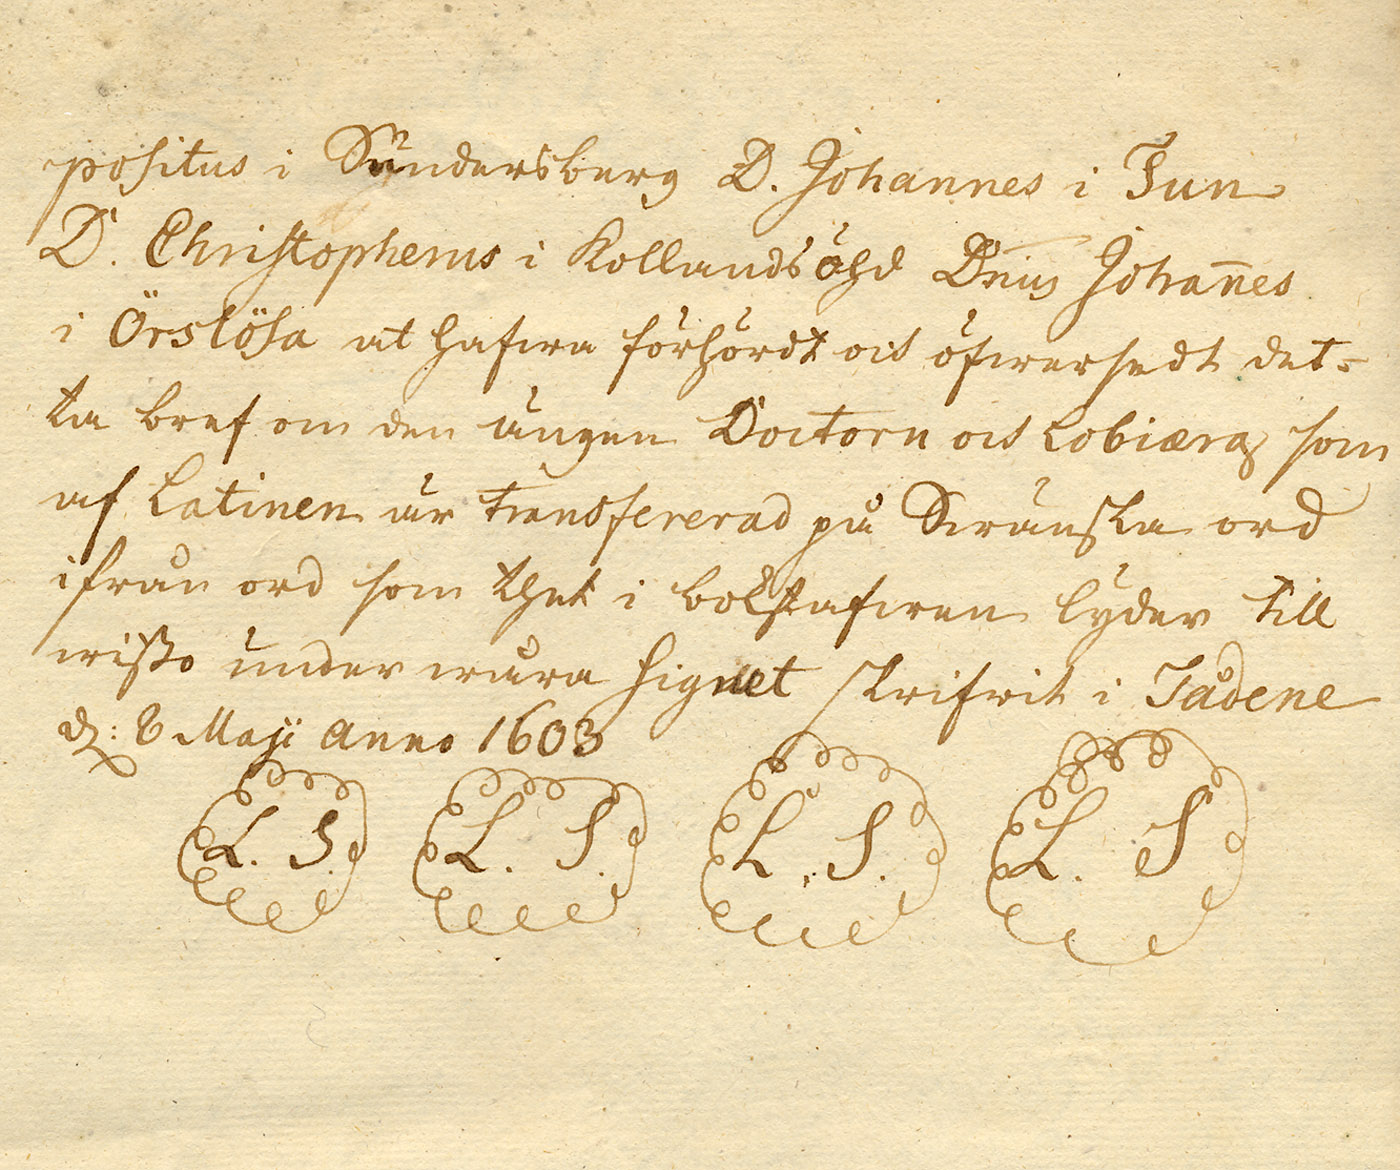 positus i Sündersberg D. Johannes i Fun
D. Christopherus i Kollandsöhd Dnus Johan̄es
i Örslösa at hafwa förhördt och öfwersedt det=
ta bref om den ängen Doctorn och Lobiæra som
af Latinen är transfererad på Swänska ord
ifrån ord som thet i bokstafwen lyder till
wisso under wåra signet skrifwit i Tådene
d: 8 Maji Anno 1603
L. S. L. S. L. S. L. S